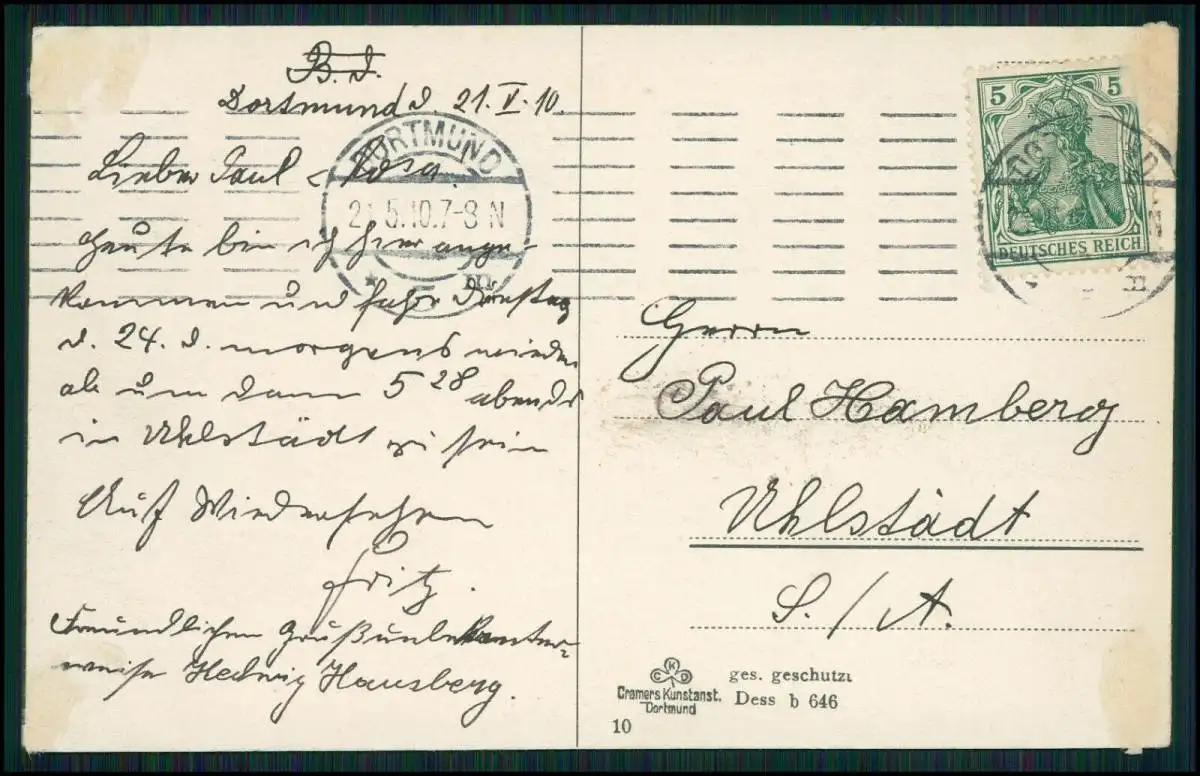 B. d.
Dortmund d. 21. V. 10.
Lieber Paul u. Rosa.
Heute bin ich hier ange-
kommen und fahr Dienstag
d. 24. d. morgens wieder
ab um dann 5 28 abends
in Uhlstädt zu sein
Auf Wiedersehen
Fritz.
Freundlichen Gruß unbekannter-
weise Hedwig Hausberg.
DORTMUND
21.5.10.7-8 N
* 5 m
5 5
DEUTSCHES REICH
Herrn
Paul Hamberg
Uhlstädt
S./A.
C K D
Cramers Kunstanst.
Dortmund
ges. geschützt
Dess b 646
10